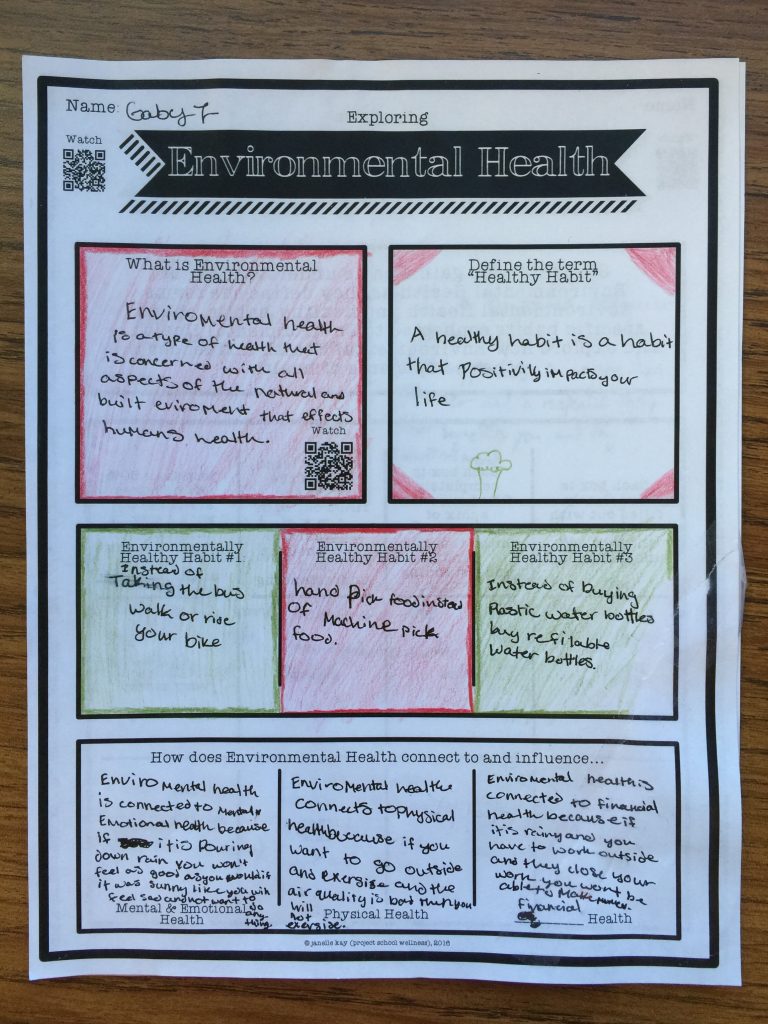 Name: Gaby
Exploring
Watch
Environmental Health
What is Environmental
Health?
Enviromental health
is a type of health that
is concerned with all
aspects of the natural and
built eviroment that effects
humans health.
Watch
Define the term
"Healthy Habit"
A healthy habit is a habit
that Positivily impacts your
life
Environmentally
Healthy Habit #1:
Instead of
Taking the bus
walk or ride
your bike
Environmentally
Healthy Habit #2
hand pick food instead
OF Machine pick
food.
Environmentally
Healthy Habit #3
Instead of buying
Plastic water bottles
buy refilable
water bottles.
How does Environmental Health connect to and influence...
Enviromental health
is connected to Mental &
Emotional health because
If it is Pouring
down rain you won't
feel as good as you would if
it was sunny like you will
feel sad and not want to
do
any-
thing
Mental & Emotional
Health
Enviromental healthe
connects to physical
health because if you
want to go outside
and exersise and the
air quality is bad then you
will
not
exersise.
Physical Health
Enviromental health is
connected to financial
health because if
it is rainy and you
have to work outside
and they close your
work you wont be
able to Make
Financial
Health
© janelle kay (project school wellness), 2016